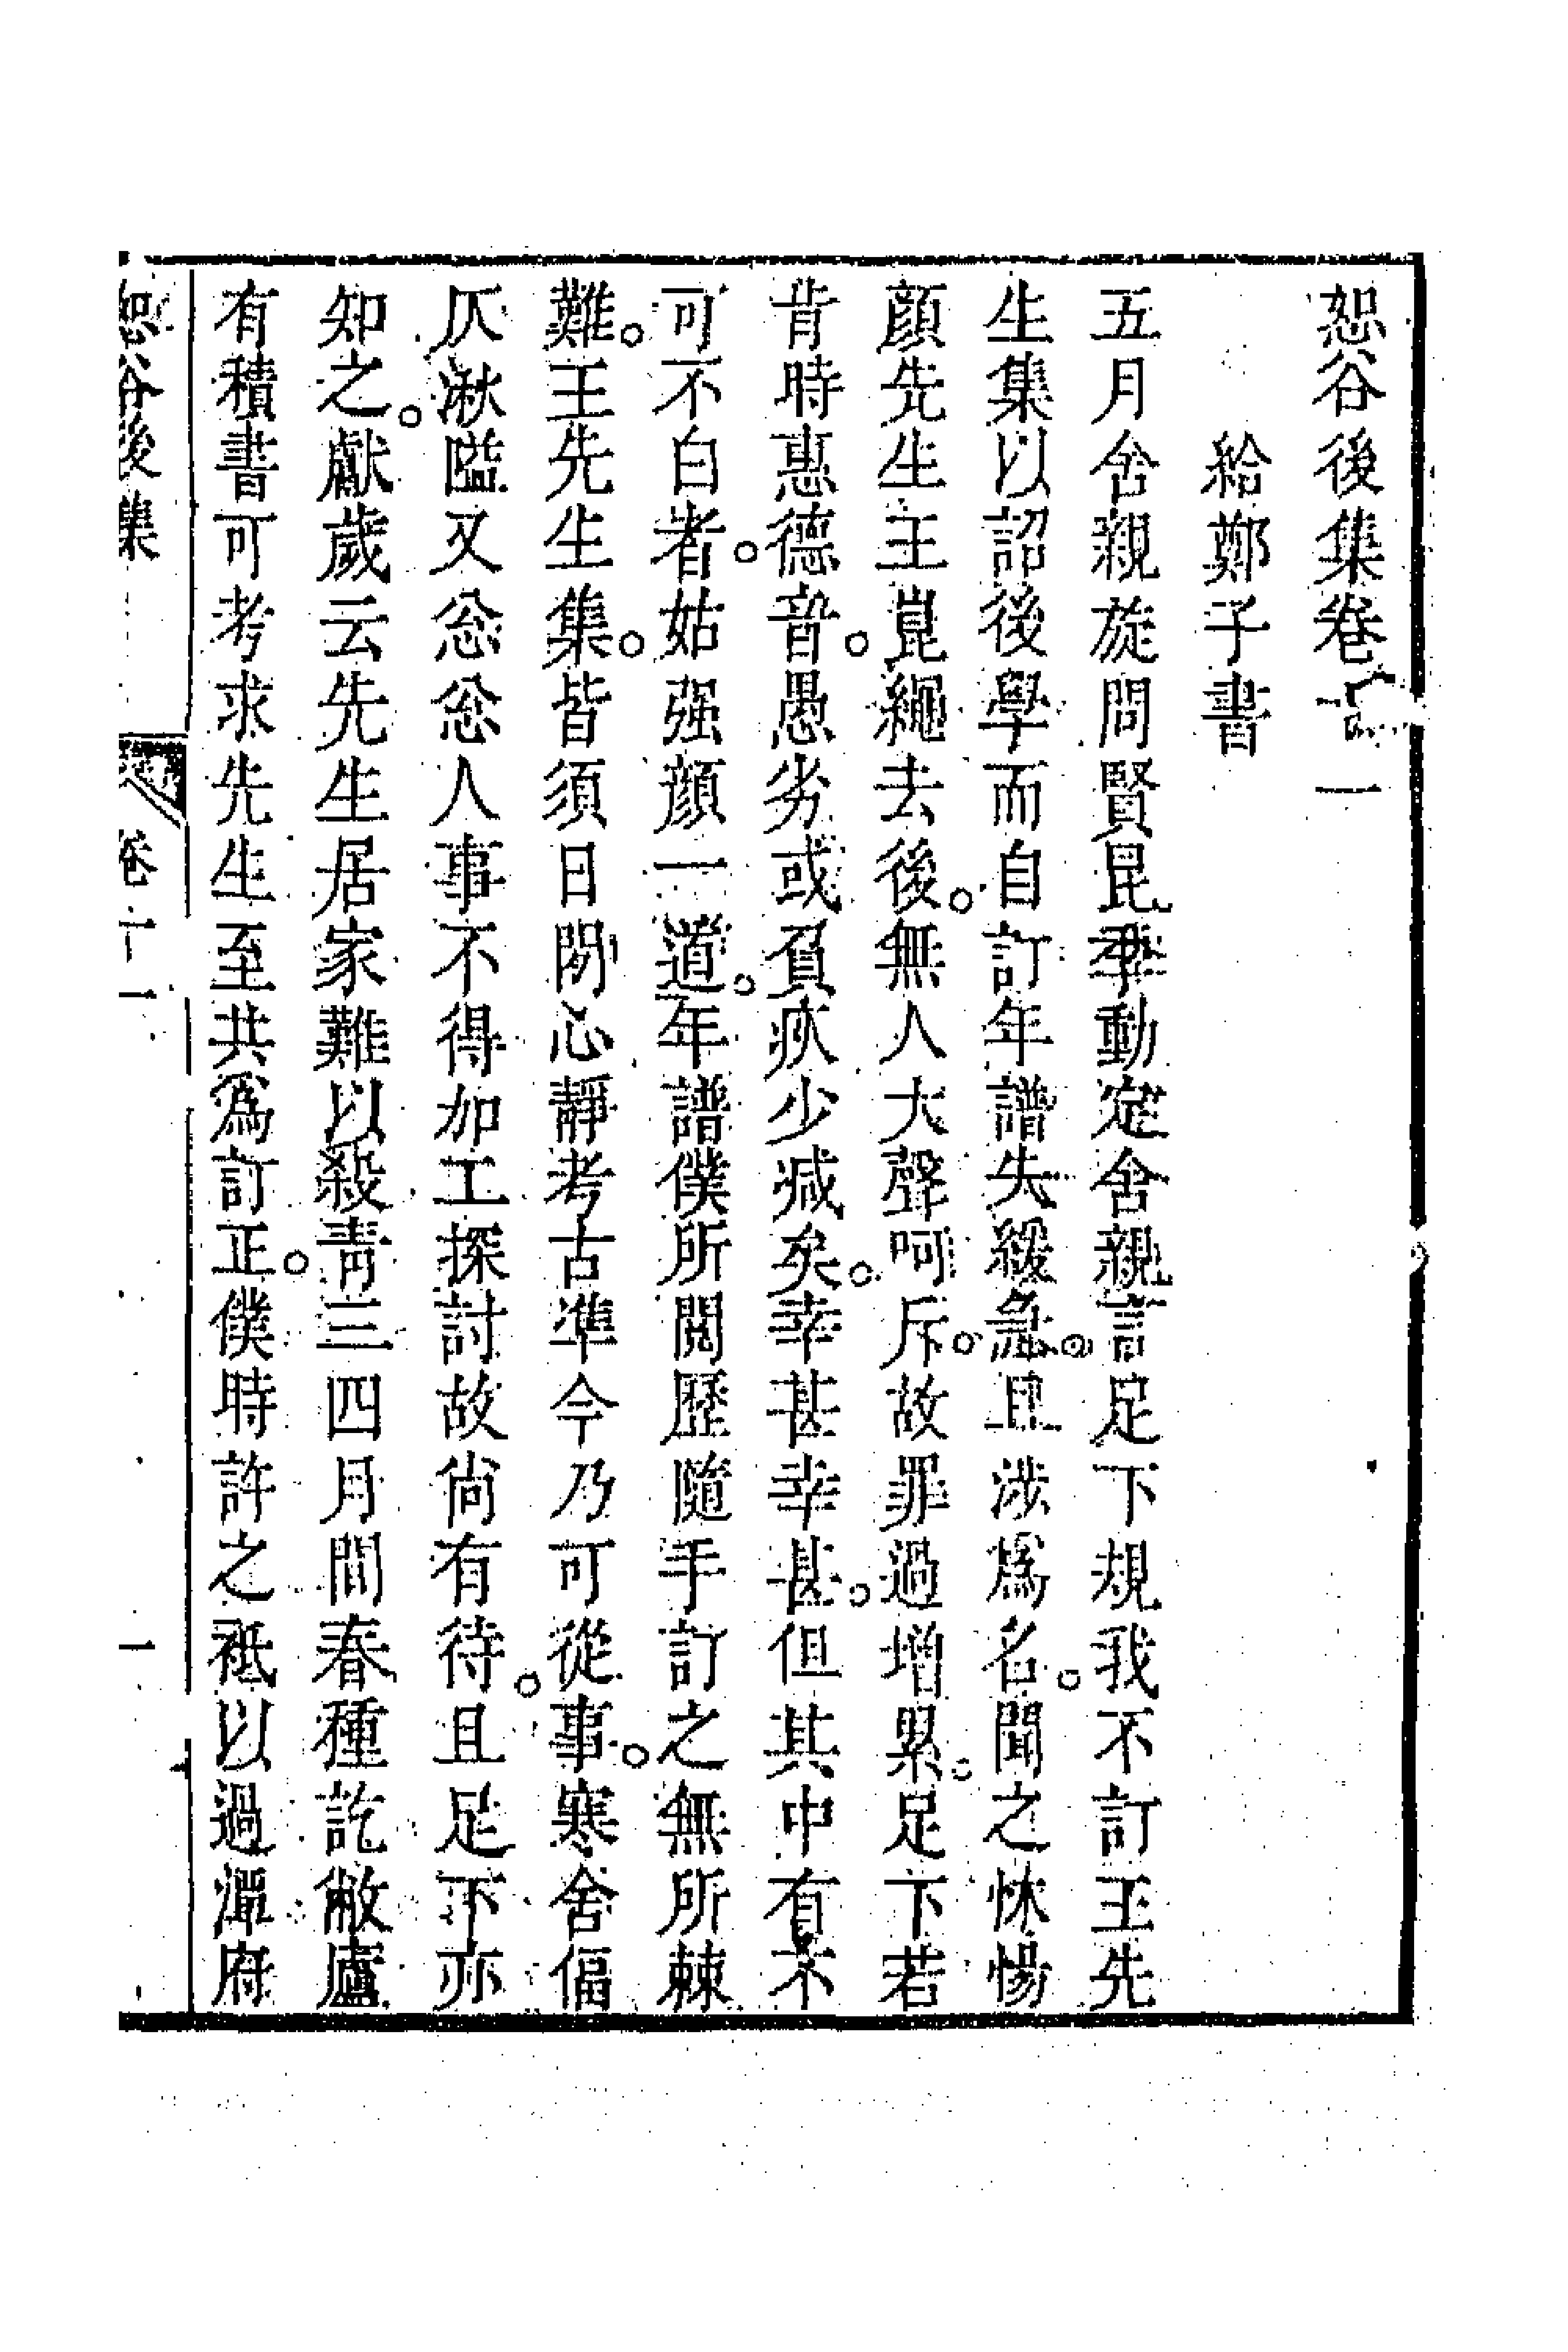 恕谷後集卷十一
給鄭子書
五月舍親旋問賢昆季動定舍親言足下規我不訂王先
生集以詔後學而自訂年譜失緩急。且涉爲名。聞之怵惕
顔先生王崑繩去後。無人大聲呵斥。故罪過增累。足下若
肯時惠德音。愚劣或負疚少减矣。幸甚幸甚。但其中有不
可不白者。姑强顔一道。年譜僕所閲歷隨手訂之無所棘
難。王先生集。皆須日閒心靜考古凖今乃可從事。寒舍偪
仄湫隘又忩忩人事不得加工探討故尙有待。且足下亦
知之。獻歲云先生居家難以殺靑三四月間春種訖敝廬
有積書可考求先生至共爲訂正。僕時許之祗以過潭府
恕谷後集 卷十一 一